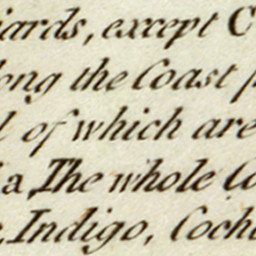 iards, except C
ong the Coast
l of which are
a, The whole Co
e, Indigo, Coch